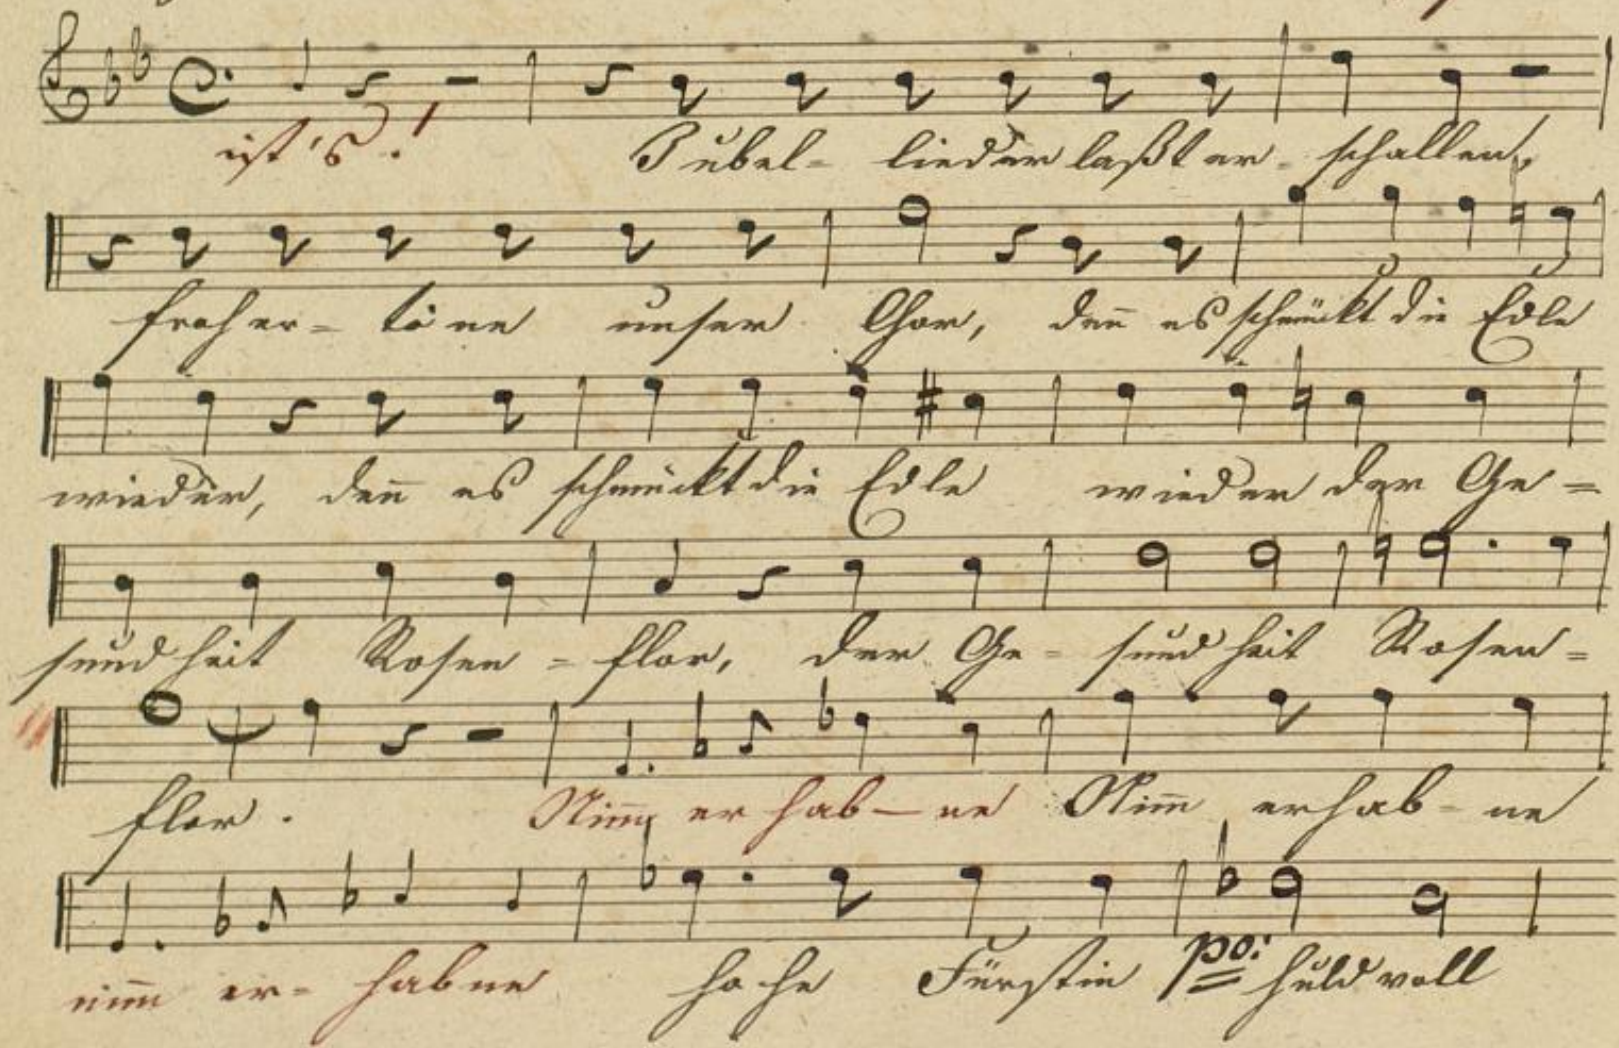 ist's!
Jubel- lieder laßt er- schallen,
froh er- töne unser Chor, den̄ es schmückt die Edle
wieder, den̄ es schmückt die Edle wieder der Ge=
sundheit Rosen= flor, der Ge- sundheit Rosen=
flor. Nim̄ er hab- ne Nim̄ erhab- ne
nim̄ er- habne hohe Fürstin po: huldvoll